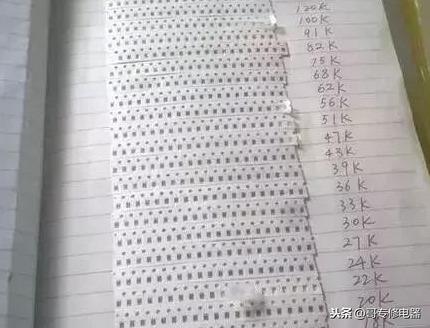 120K
100K
91K
82K
75K
68K
62K
56K
51K
47K
43K
39K
36K
33K
30K
27K
24K
22K
20K
头条@阿专修电器